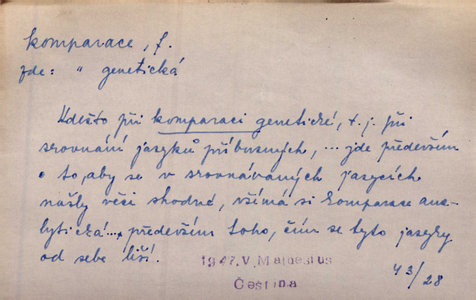 komparace, f.
zde: " genetická
Kdežto při komparaci genetické, t. j. při
srovnání jazyků příbuzných, ... jde především
o to, aby se v srovnávaných jazycích
našly věci shodné, všímá si komparace ana-
lytická ..., především toho, čím se tyto jazyky
od sebe liší.
1947.V. Mathesius
Čeština
43/28